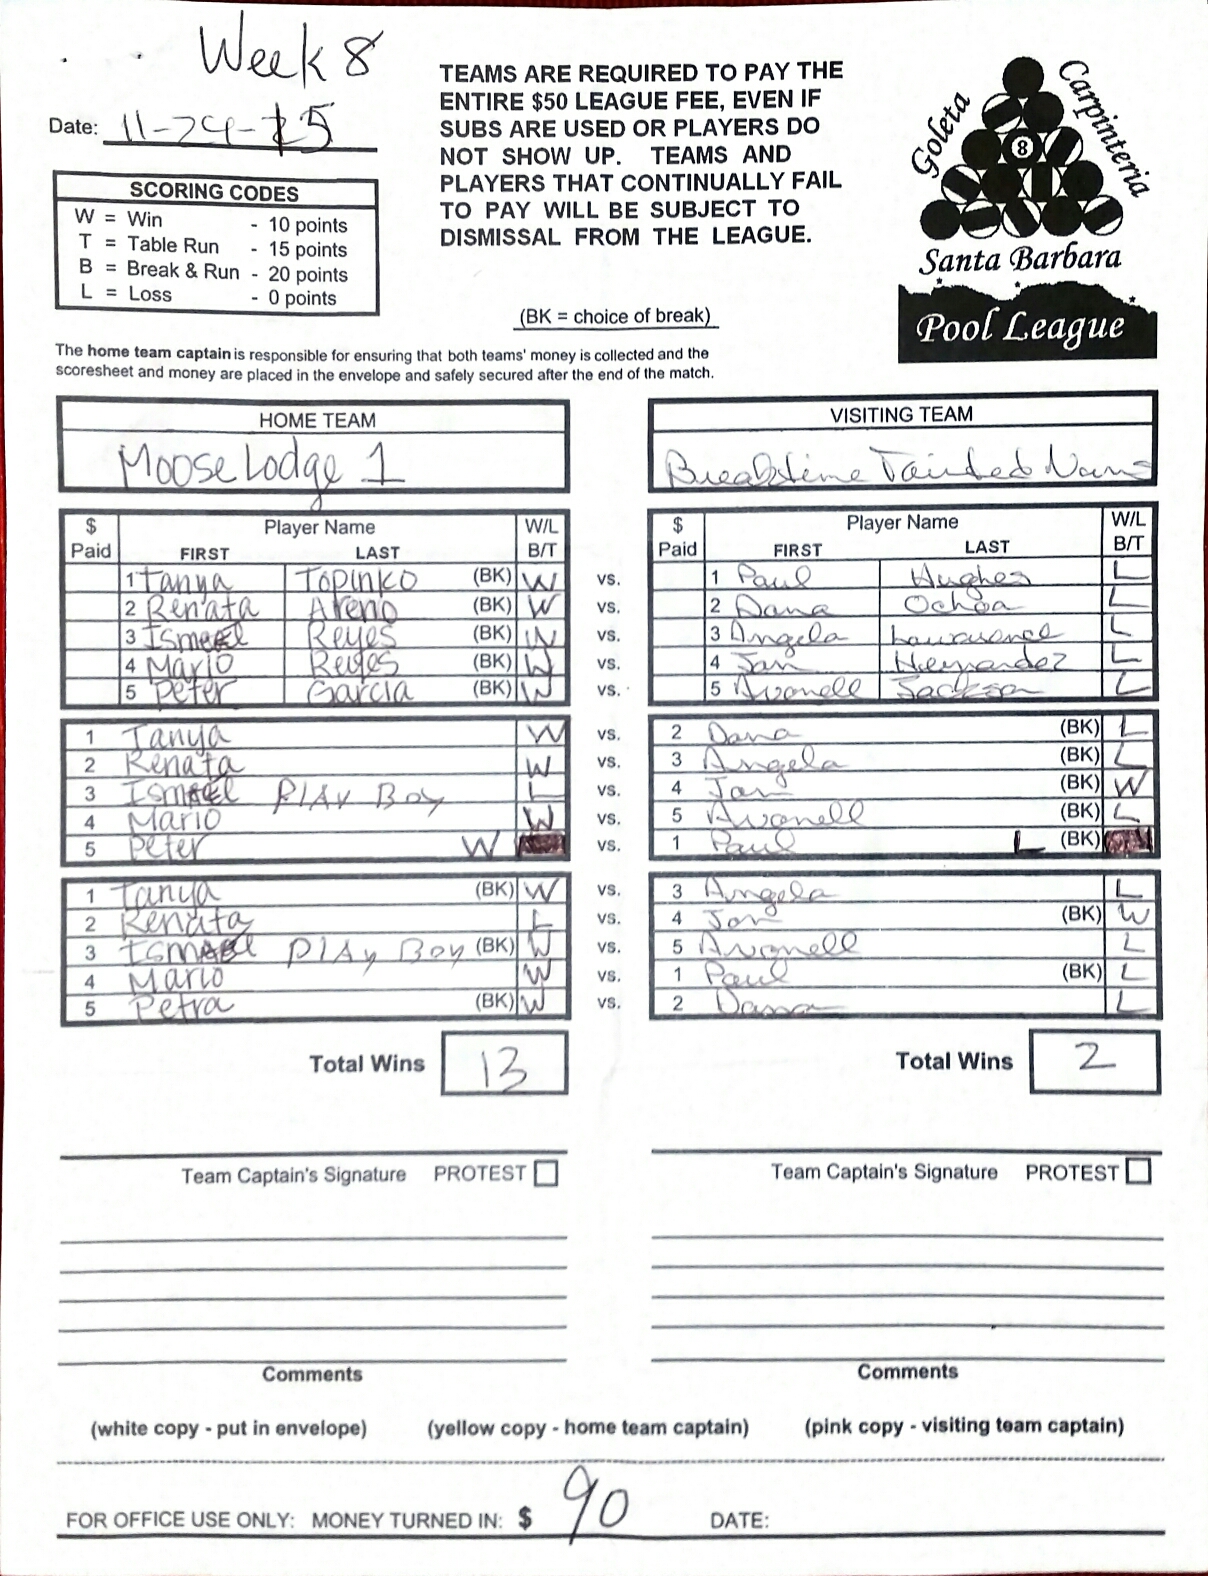 Week 8
Date: 11-24-25
SCORING CODES
W = Win - 10 points
T = Table Run - 15 points
B = Break & Run - 20 points
L = Loss - 0 points
TEAMS ARE REQUIRED TO PAY THE
ENTIRE $50 LEAGUE FEE, EVEN IF
SUBS ARE USED OR PLAYERS DO
NOT SHOW UP. TEAMS AND
PLAYERS THAT CONTINUALLY FAIL
TO PAY WILL BE SUBJECT TO
DISMISSAL FROM THE LEAGUE.
(BK = choice of break)
Goleta
Carpinteria
8
Santa Barbara
Pool League
The home team captain is responsible for ensuring that both teams' money is collected and the
scoresheet and money are placed in the envelope and safely secured after the end of the match.
HOME TEAM
Moose Lodge 1
VISITING TEAM
Breaktime Tainted
$ Paid Player Name FIRST LAST W/L B/T
$ Paid Player Name FIRST LAST W/L B/T
1 Tanya Topinko (BK) W vs. 1 Paul Hughes L
2 Renata Areno (BK) W vs. 2 Dana Ochoa L
3 Ismael Reyes (BK) W vs. 3 Angela L
4 Mario Reyes (BK) W vs. 4 Jan Hernandez L
5 Peter Garcia (BK) W vs. 5 Avonell Jackson L
1 Tanya W vs. 2 Dana (BK) L
2 Renata W vs. 3 Angela (BK) L
3 Ismael PlAy Boy L vs. 4 Jan (BK) W
4 Mario W vs. 5 Avonell (BK) L
5 Peter W vs. 1 Paul L (BK)
1 Tanya (BK) W vs. 3 Angela L
2 Renata L vs. 4 Jan (BK) W
3 Ismael PlAy Boy (BK) W vs. 5 Avonell L
4 Mario W vs. 1 Paul (BK) L
5 Petra (BK) W vs. 2 Dana L
Total Wins 13
Total Wins 2
Team Captain's Signature PROTEST
Team Captain's Signature PROTEST
Comments
Comments
(white copy - put in envelope) (yellow copy - home team captain) (pink copy - visiting team captain)
FOR OFFICE USE ONLY: MONEY TURNED IN: $ 90 DATE: